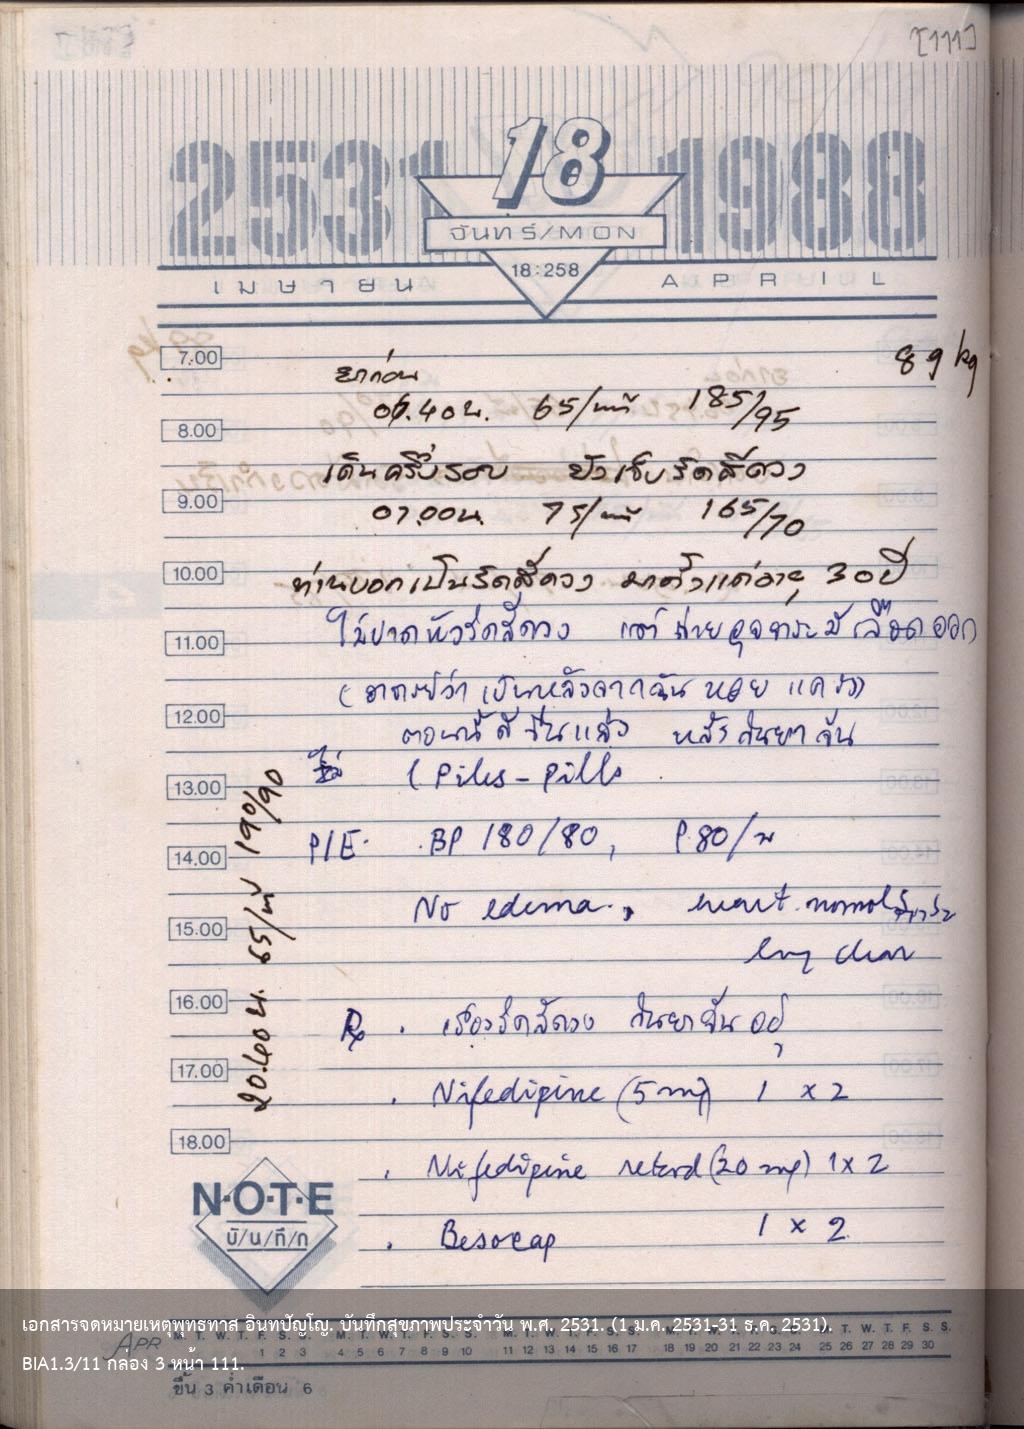 [111]
2531 18 1988
จันทร์/MON
18:258
เมษายน APRIL
7.00
89 kg
ยาก่อน
06.40น. 65/นาที 185/95
8.00
เดินครึ่งรอบ ยังเจ็บริดสีดวง
9.00
07.00น. 75/นาที 165/70
10.00
ท่านบอกเป็นริดสีดวง มาตั้งแต่อายุ 30 ปี
11.00
ไม่ปวดหัวริดสีดวง แต่ถ่ายอุจจาระมีเลือดออก
(อาจารย์ว่า เป็นหลังจากฉัน หอย แครง)
12.00
ตอนนี้ดีขึ้นแล้ว หลังฉันยาจีน
(Piles - pills
13.00
P/E. BP 180/80, P 80/น
14.00
No edema, heart normal
15.00
lung clear
16.00
Rx . เรื่องริดสีดวง ฉันยาจีนอยู่
17.00
. Nifedipine (5 mg) 1 x 2
18.00
. Nifedipine retard (20 mg) 1 x 2
. Besorcap 1 x 2
20.40 น. 65/นาที 190/90
N·O·T·E
บั/น/ทึ/ก
เอกสารจดหมายเหตุพุทธทาส อินทปัญโญ. บันทึกสุขภาพประจำวัน พ.ศ. 2531. (1 ม.ค. 2531-31 ธ.ค. 2531).
BIA1.3/11 กล่อง 3 หน้า 111.
APR M. T. W. T. F. S. S. M. T. W. T. F. S. S. M. T. W. T. F. S. S. M. T. W. T. F. S. S. M. T. W. T. F. S. S.
1 2 3 4 5 6 7 8 9 10 11 12 13 14 15 16 17 18 19 20 21 22 23 24 25 26 27 28 29 30
ขึ้น 3 ค่ำเดือน 6